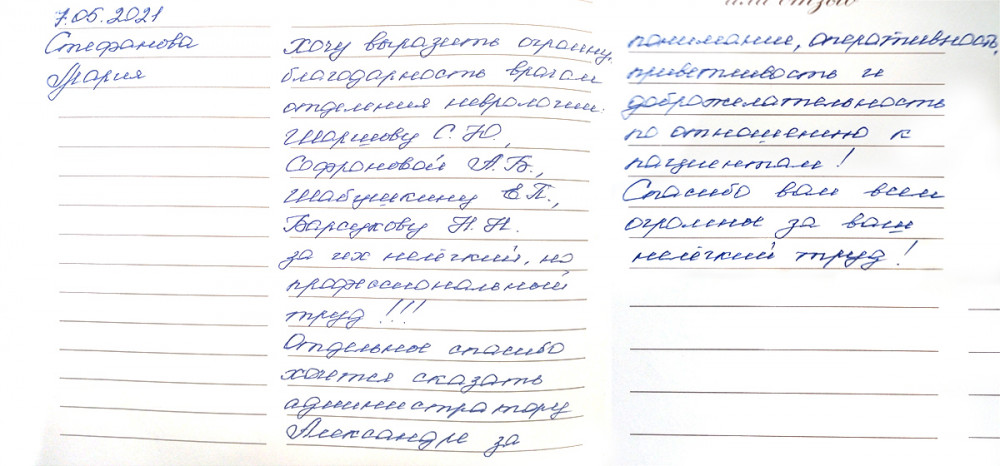 7.05.2021
Стефанова
Мария
хочу выразить огромную
благодарность врачам
отделения неврологии:
Шоршову С. Ю.,
Софроновой А. Б.,
Шабушкину Е. П.,
Барсукову Н. Н.
за их нелёгкий, но
профессиональный
труд!!!
Отдельное спасибо
хочется сказать
администратору
Александре за
или отзыв
понимание, оперативность,
приветливость и
доброжелательность
по отношению к
пациентам!
Спасибо вам всем
огромное за ваш
нелёгкий труд!